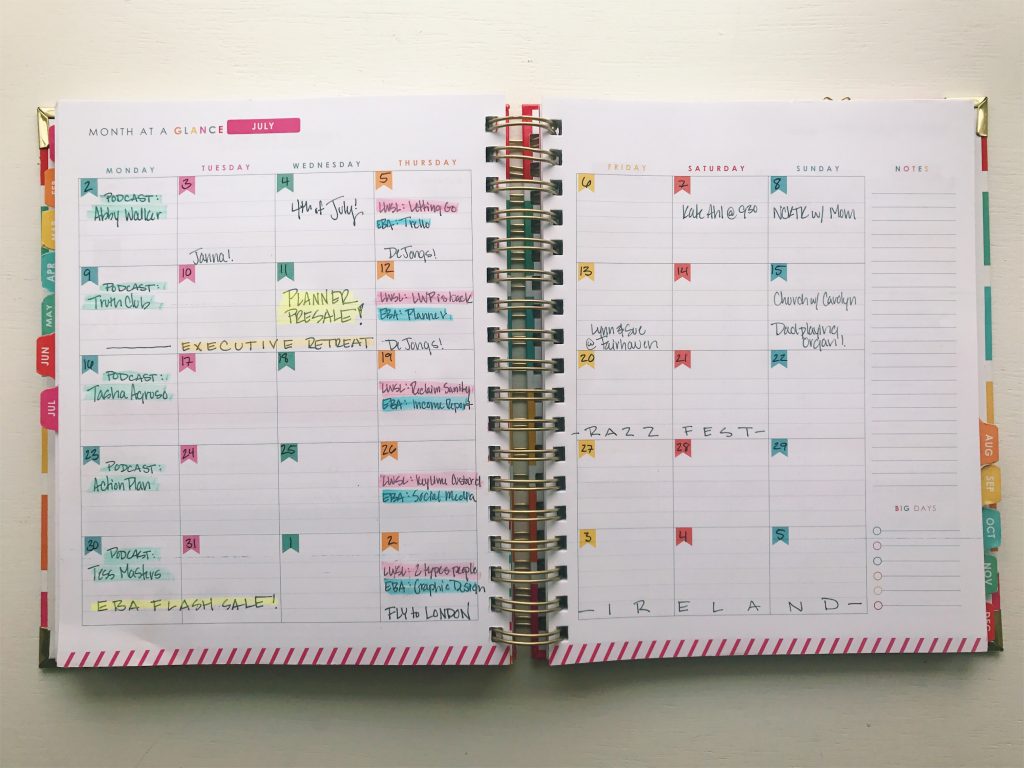 MONTH AT A GLANCE JULY
MONDAY TUESDAY WEDNESDAY THURSDAY
2 3 4 5
PODCAST:
Abby Walker
4th of July!
LWSL: Letting Go
EBA: Trello
Janna!
DeJongs!
9 10 11 12
PODCAST:
Truth Club
PLANNER
PRESALE!
LWSL: LWP is back
EBA: Planner
EXECUTIVE RETREAT
DeJongs!
16 17 18 19
PODCAST:
Tasha
LWSL: Reclaim Sanity
EBA: Income Report
23 24 25 26
PODCAST:
Action Plan
LWSL: Key Lime Custard
EBA: Social Media
30 31 1 2
PODCAST:
Tess Masters
LWSL: 2 types people
EBA: Graphic Design
EBA FLASH SALE!
FLY to LONDON
FRIDAY SATURDAY SUNDAY NOTES
6 7 8
Kate Ahl @ 930
NCKTK w/ Mom
13 14 15
Church w/ Carolyn
Lynn & Sue
@ Fairhaven
Dad playing
organ!
20 21 22
-RAZZ FEST-
27 28 29
BIG DAYS
3 4 5
-IRELAND-
FEB
MAR
APR
MAY
JUN
JUL
AUG
SEP
OCT
NOV
DEC